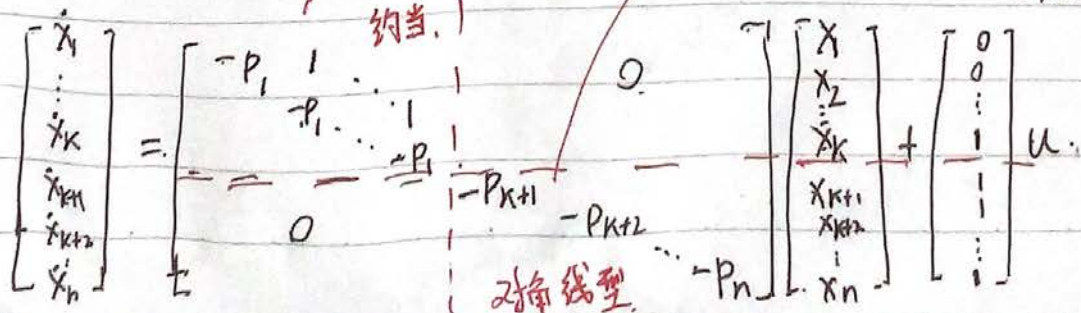 约当.
[ẋ₁ ⋮ ẋₖ ẋₖ₊₁ ẋₖ₊₂ ⋮ ẋₙ] = [-P₁ 1 ⋱ -P₁ ⋱ 1 -P₁ 0 0 -Pₖ₊₁ -Pₖ₊₂ ⋱ -Pₙ] [x₁ x₂ ⋮ xₖ xₖ₊₁ xₖ₊₂ ⋮ xₙ] + [0 0 ⋮ 1 1 1 ⋮ 1] u.
对角线型.